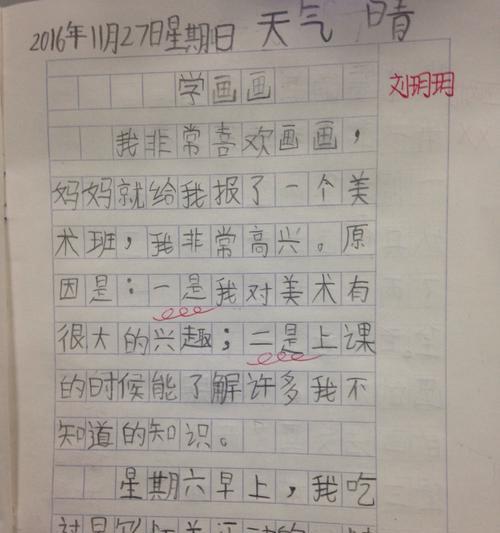 2016年11月27日星期日 天气 晴
学画画
刘玥玥
我非常喜欢画画，
妈妈就给我报了一个美
术班，我非常高兴。原
因是：一是我对美术有
很大的兴趣；二是上课
的时候能了解许多我不
知道的知识。
星期六早上，我吃